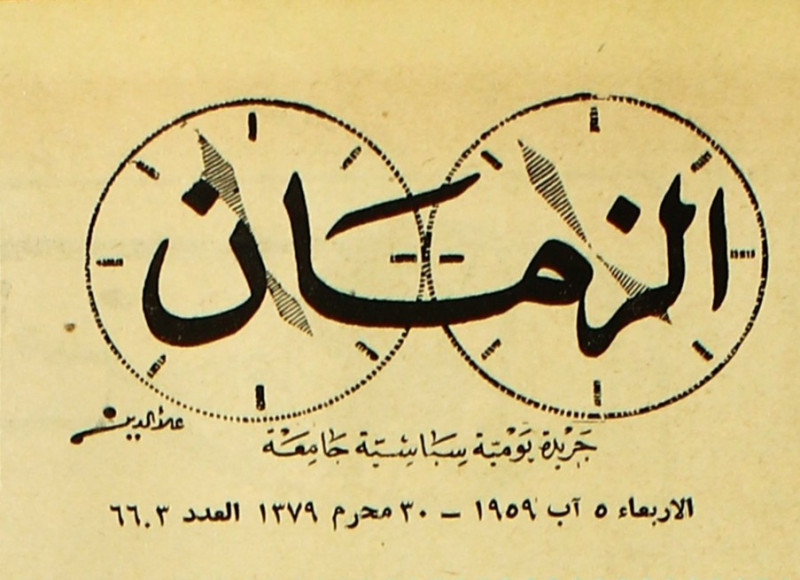 الزمان
علاءالدين
جَرِيْدَة يَوْمِيَّة سِيَاسِيَّة جَامِعَة
الاربعاء ٥ آب ١٩٥٩ – ٣٠ محرم ١٣٧٩ العدد ٦٦٠٣